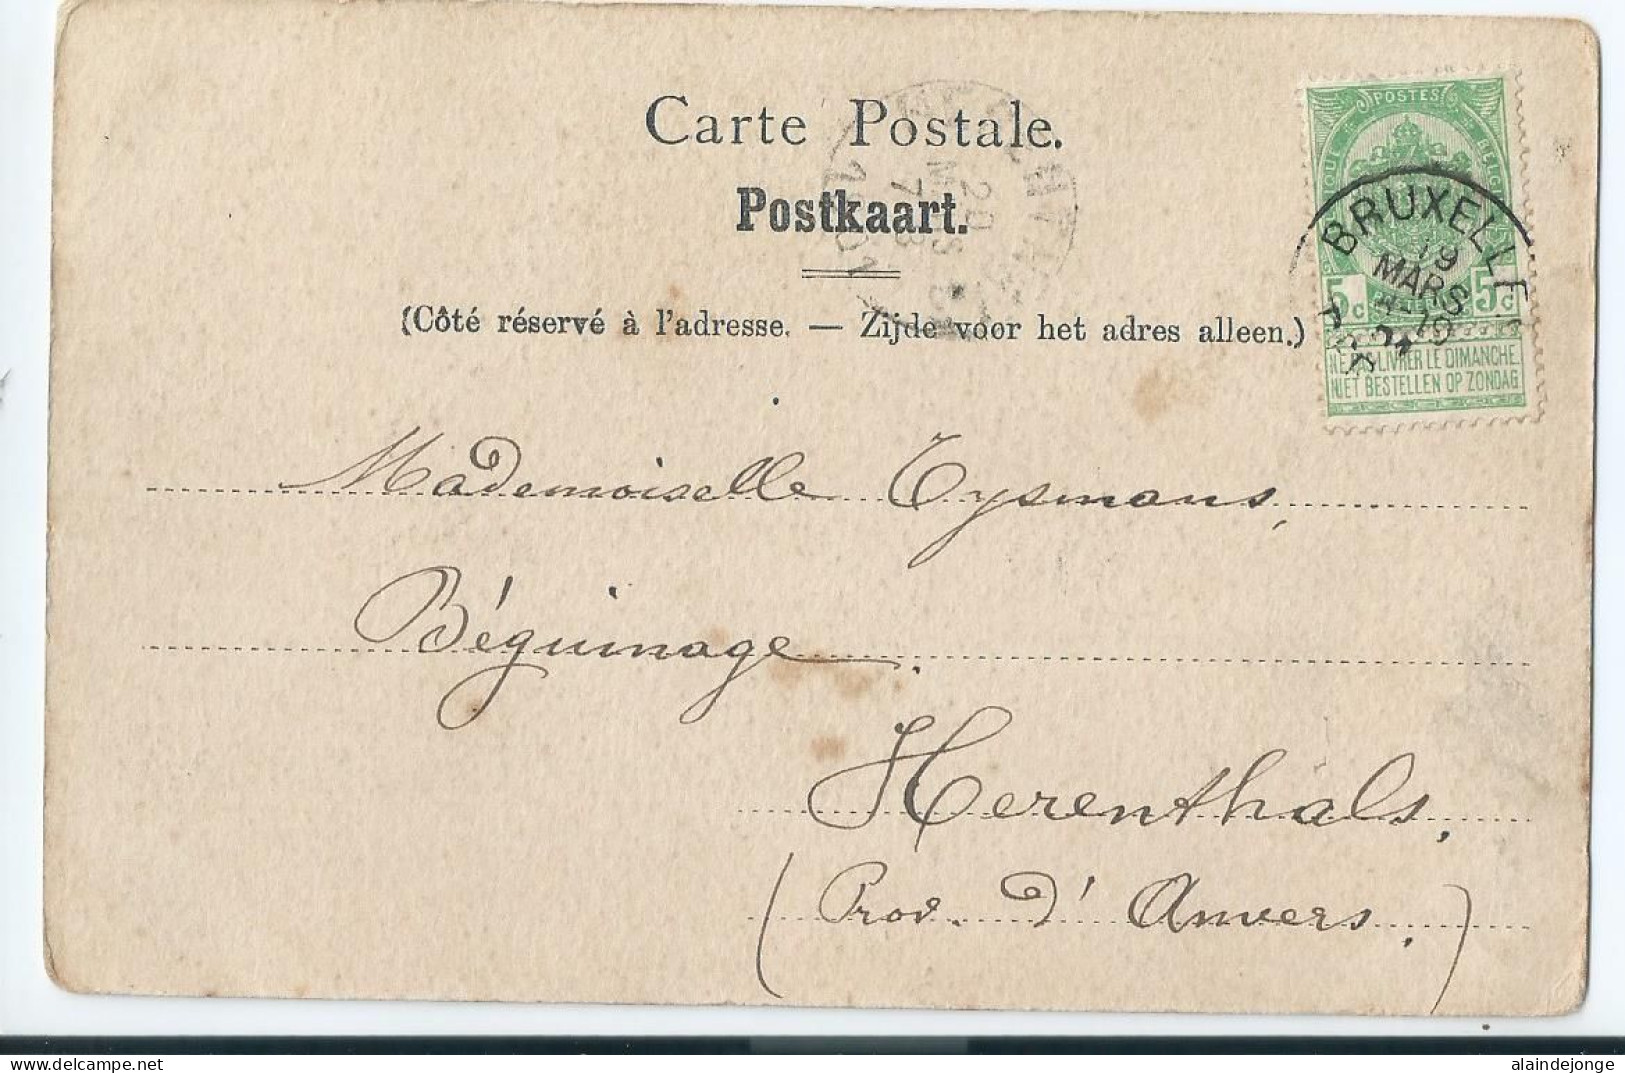 Carte Postale.
Postkaart.
(Côté réservé à l'adresse. — Zijde voor het adres alleen.)
POSTES
5c 5c
NE PAS LIVRER LE DIMANCHE
NIET BESTELLEN OP ZONDAG
BRUXELLES
19
MARS
20
Mademoiselle Tysmans,
Béguinage.
Herenthals,
(Prov. d'Anvers.)
alaindejonge